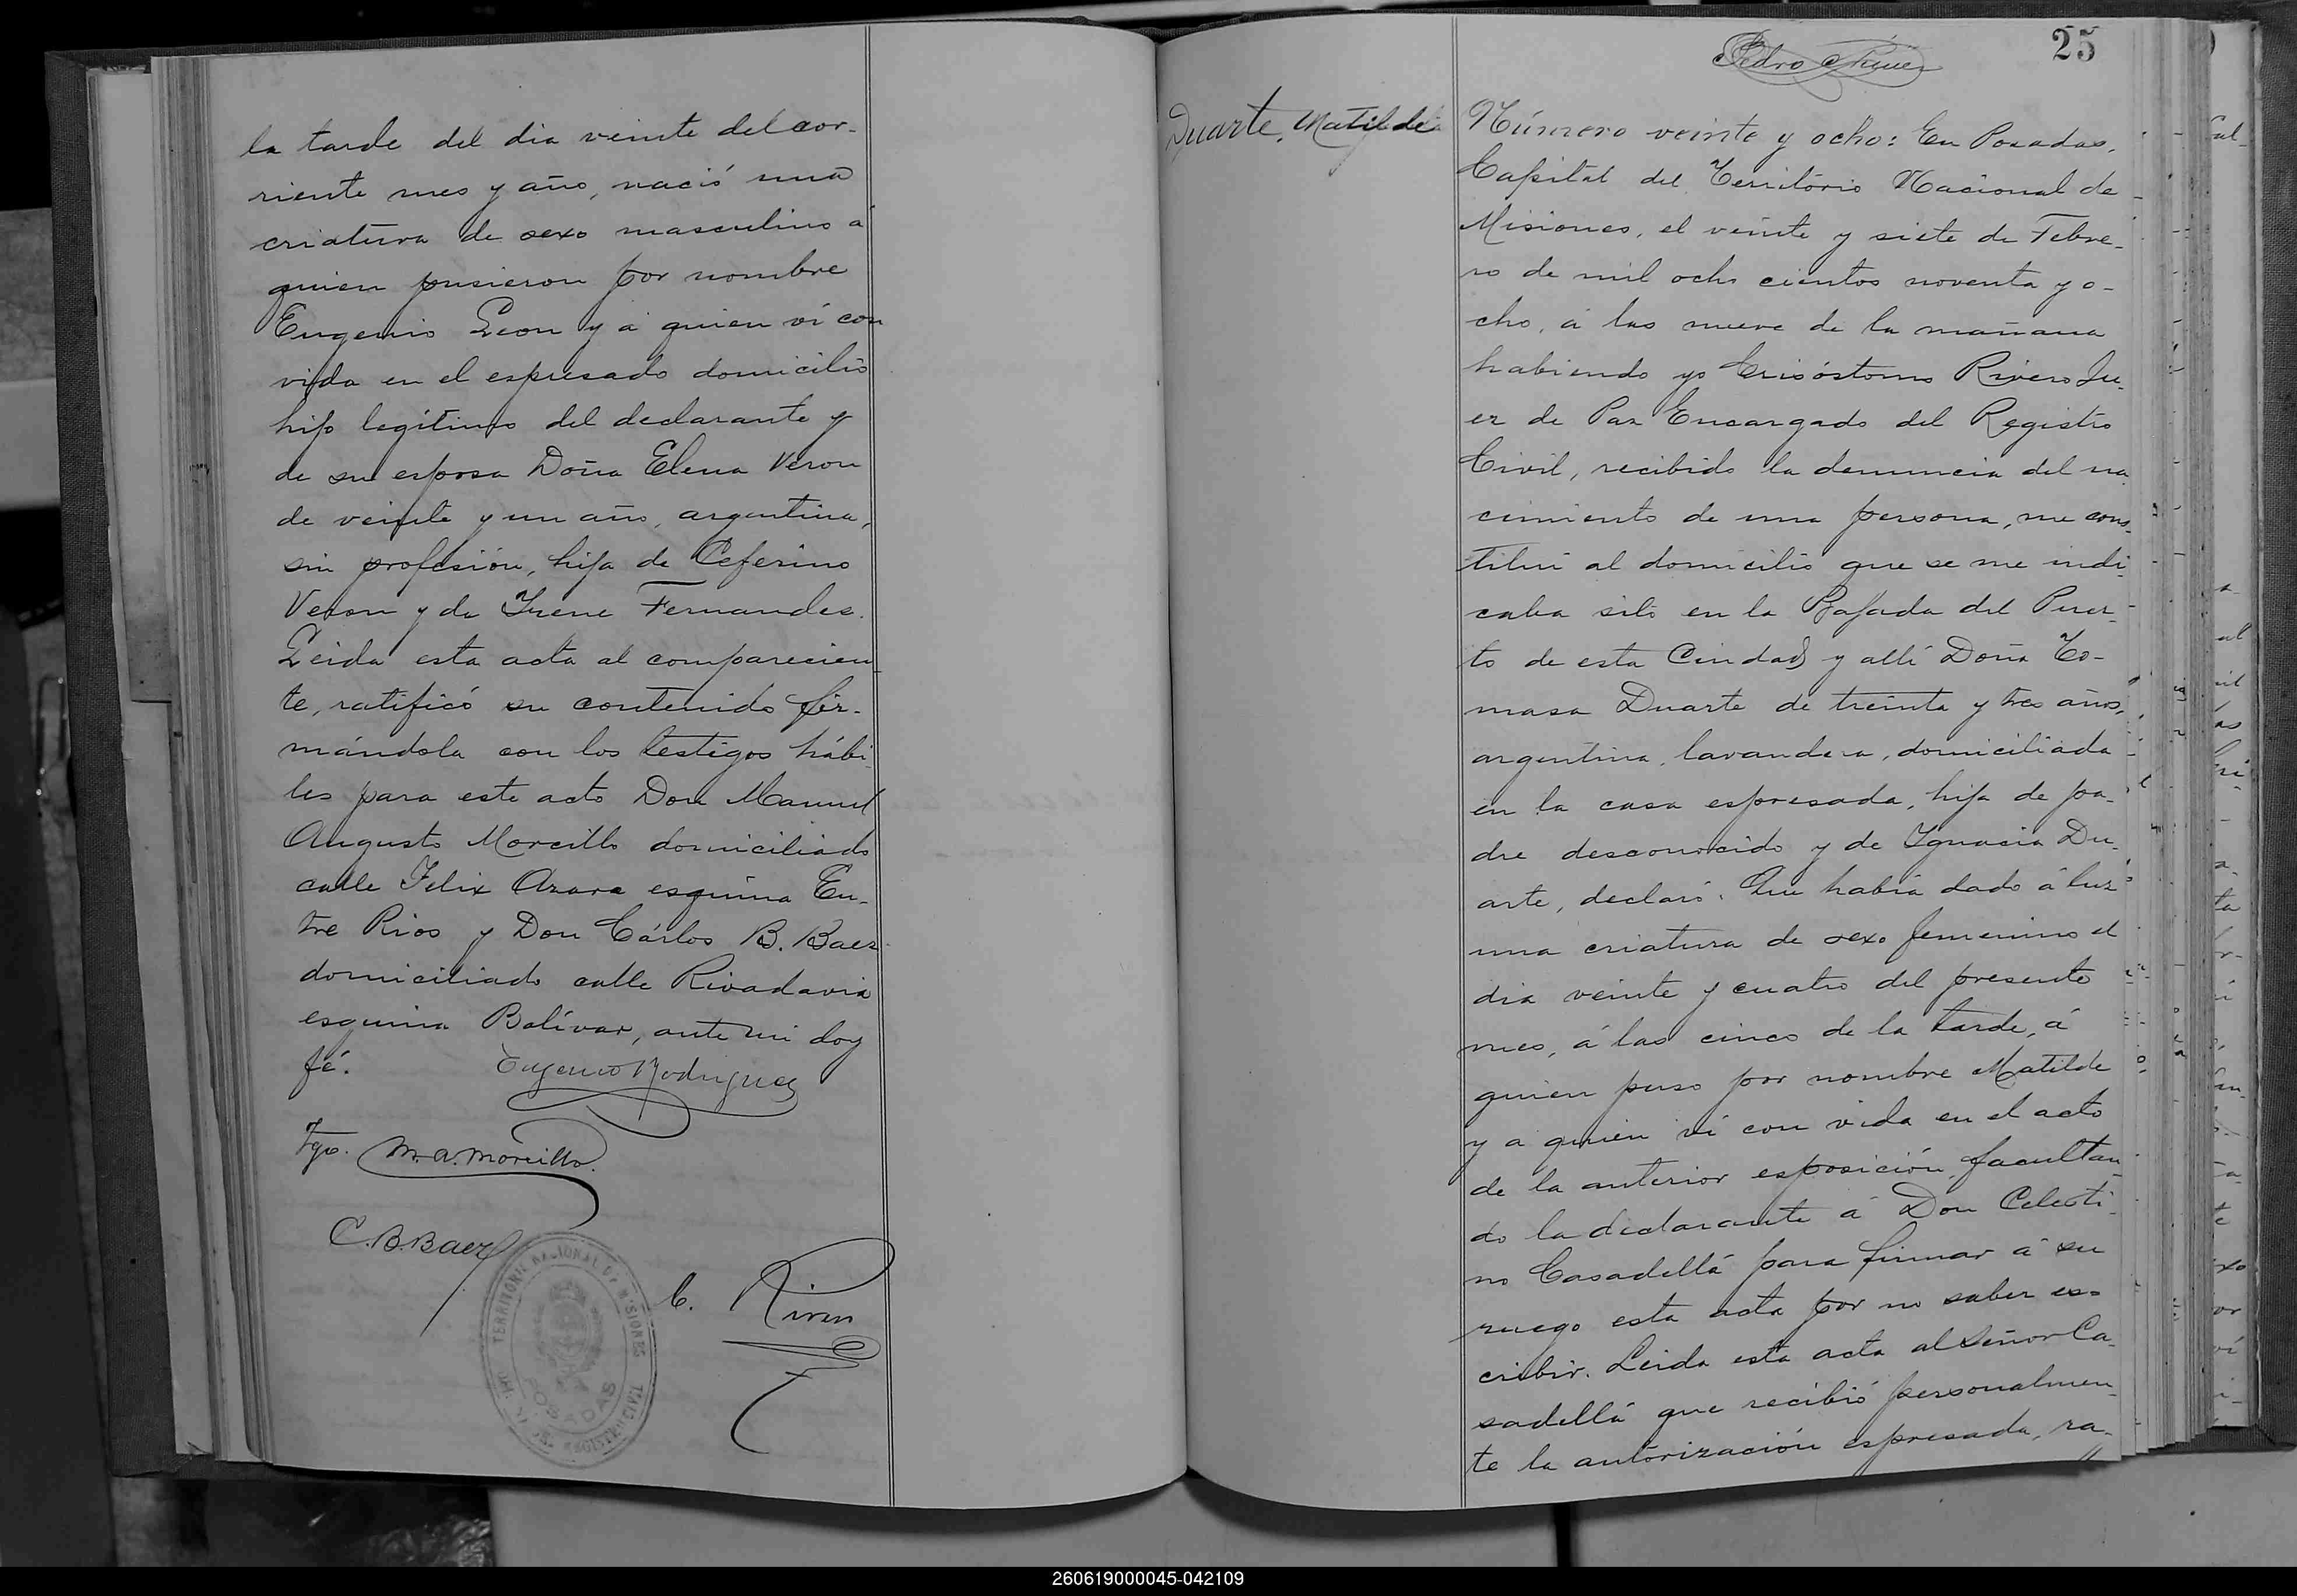 la tarde del dia veinte del cor-
riente mes y año, nació una
criatura de sexo masculino á
quien pusieron por nombre
Eugenio Leon y á quien ví con
vida en el espresado domicilio
hijo legítimo del declarante y
de su esposa Doña Elena Veron
de veinte y un año, argentina,
sin profesión, hija de Ceferino
Veron y de Irene Fernandes.
Leida esta acta al comparecien-
te, ratificó su contenido fir-
mándola con los testigos hábi-
les para este acto Don Manuel
Augusto Morcillo domiciliado
calle Felix Azara esquina En-
tre Rios y Don Cárlos B. Baez
domiciliado calle Rivadavia
esquina Bolívar, ante mi doy
fé.
Eugenio Rodriguez
Tgo. M. A. Morcillo.
C. B. Baez
C. Rivero
TERRITORIO NACIONAL DE MISIONES
POSADAS
REGISTRO CIVIL
25
Pedro
Duarte, Matilde
Número veinte y ocho: En Posadas,
Capital del Territorio Nacional de
Misiones, el veinte y siete de Febre-
ro de mil ocho cientos noventa y o-
cho, á las nueve de la mañana
habiendo yo Crisóstomo Rivero Ju-
ez de Paz Encargado del Registro
Civil, recibido la denuncia del na
cimiento de una persona, me cons-
tituí al domicilio que se me indi-
caba sito en la Bajada del Puer-
to de esta Ciudad y allí Doña To-
masa Duarte de treinta y tres años,
argentina, lavandera, domiciliada
en la casa espresada, hija de pa-
dre desconocido y de Ignacia Du-
arte, declaró: Que habia dado á luz
una criatura de sexo femenino el
dia veinte y cuatro del presente
mes, á las cinco de la tarde, á
quien puso por nombre Matilde
y a quien ví con vida en el acto
de la anterior esposición, facultan-
do la declarante á Don Celesti-
no Casadellá para firmar á su
ruego esta acta por no saber es-
cribir. Leida esta acta al Señor Ca-
sadellá que recibió personalmen-
te la autorización espresada, ra-
260619000045-042109